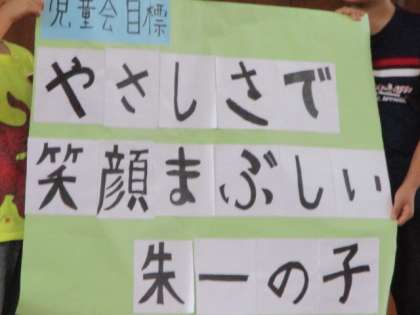 児童会目標
やさしさで
笑顔まぶしい
朱一の子